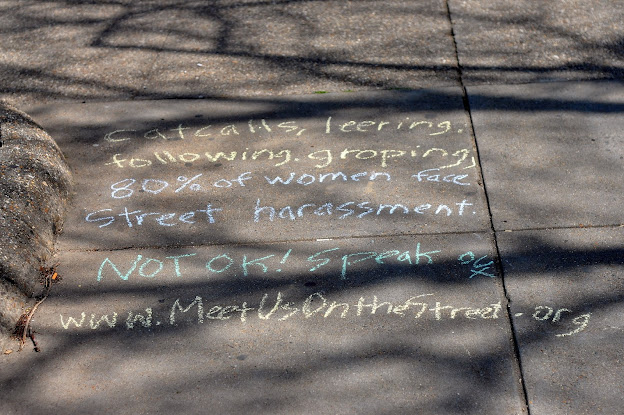 catcalls, leering.
following. groping,
80% of women face
street harassment.
NOT OK! Speak
www.MeetUsOntheStreet.org